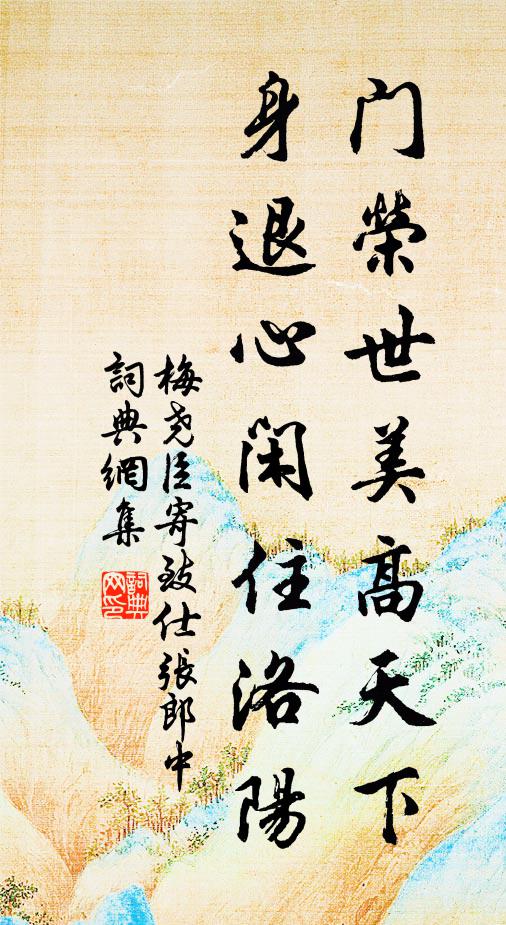 门榮世美高天下
身退心閑住洛陽
梅尧臣寄致仕張郎中
詞典網集
詞典网印